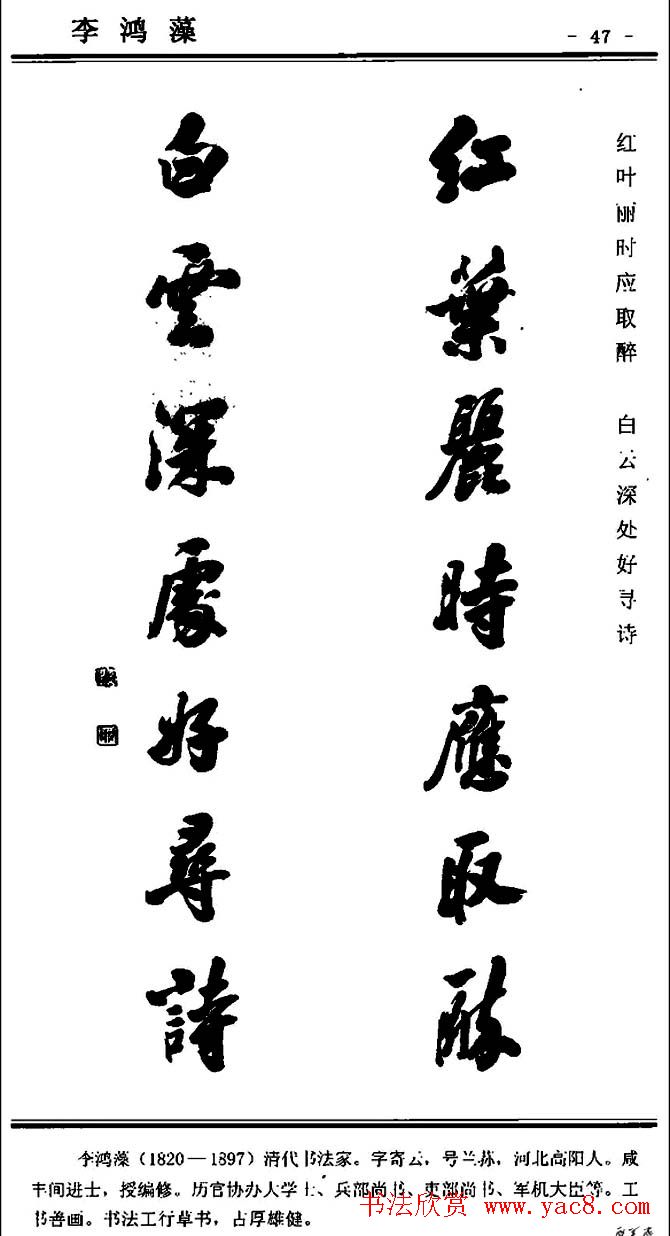 李鸿藻
- 47 -
红叶丽时应取醉 白云深处好寻诗
红葉麗時應取醉
白雲深處好尋詩
李鸿藻（1820—1897）清代书法家。字寄云，号兰荪，河北高阳人。咸
丰间进士，授编修。历官协办大学士、兵部尚书、吏部尚书、军机大臣等。工
书善画。书法工行草书，古厚雄健。
书法欣赏 www.yac8.com